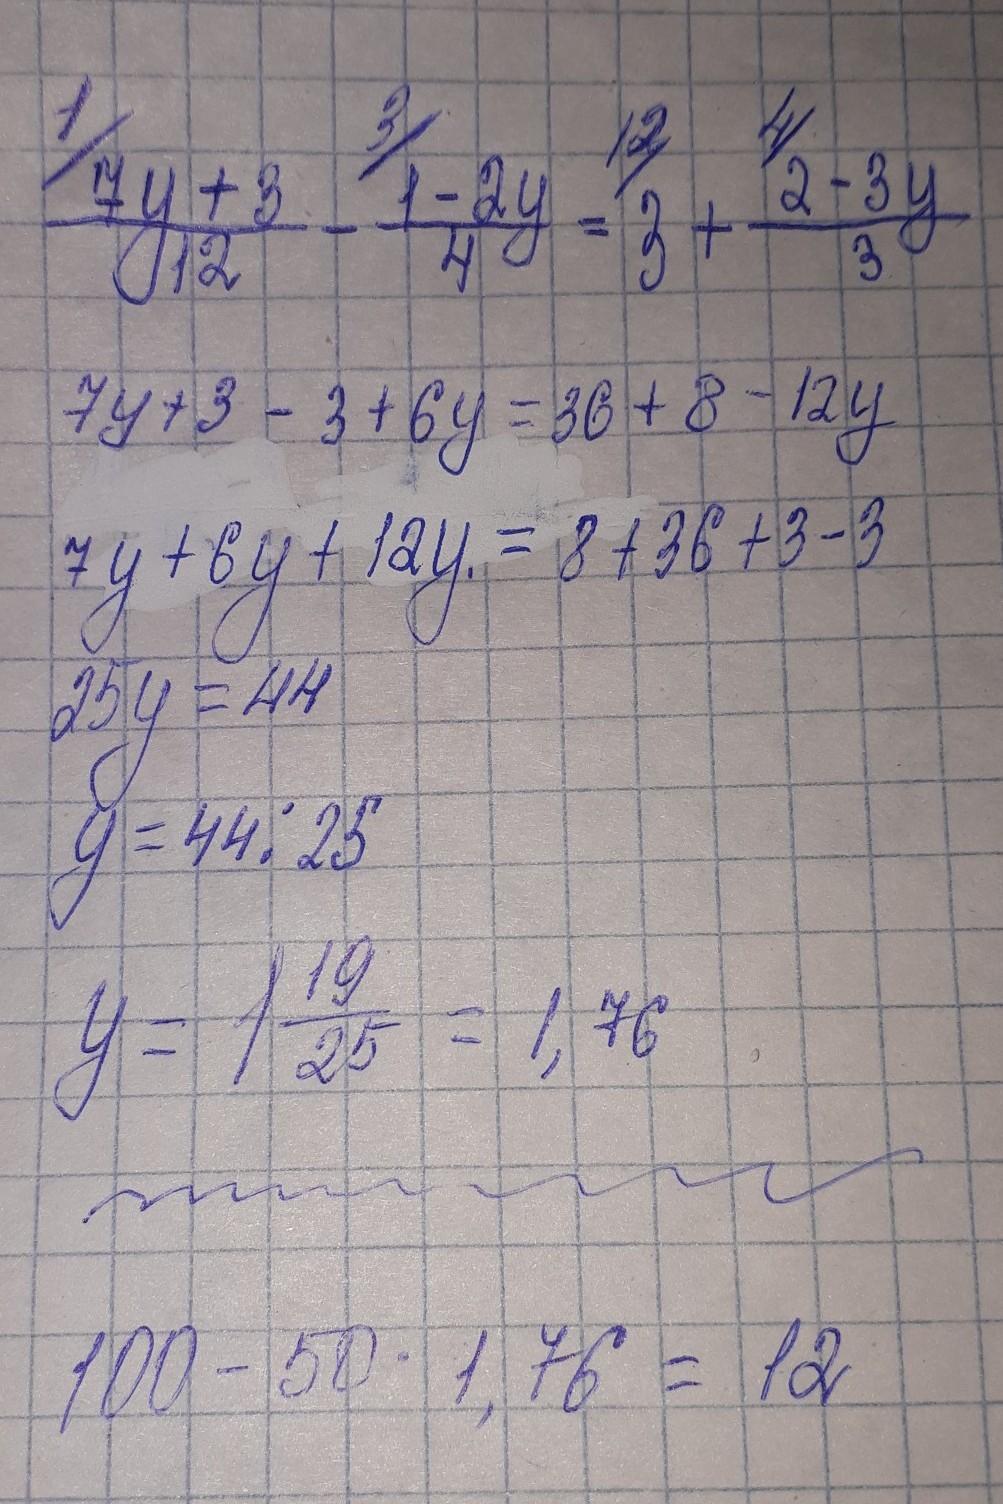 1/ 3/ 12/ 4/
(7y + 3)/12 - (1 - 2y)/4 = 3 + (2 - 3y)/3
7y + 3 - 3 + 6y = 36 + 8 - 12y
7y + 6y + 12y = 8 + 36 + 3 - 3
25y = 44
y = 44 : 25
y = 1 19/25 = 1,76
100 - 50 · 1,76 = 12